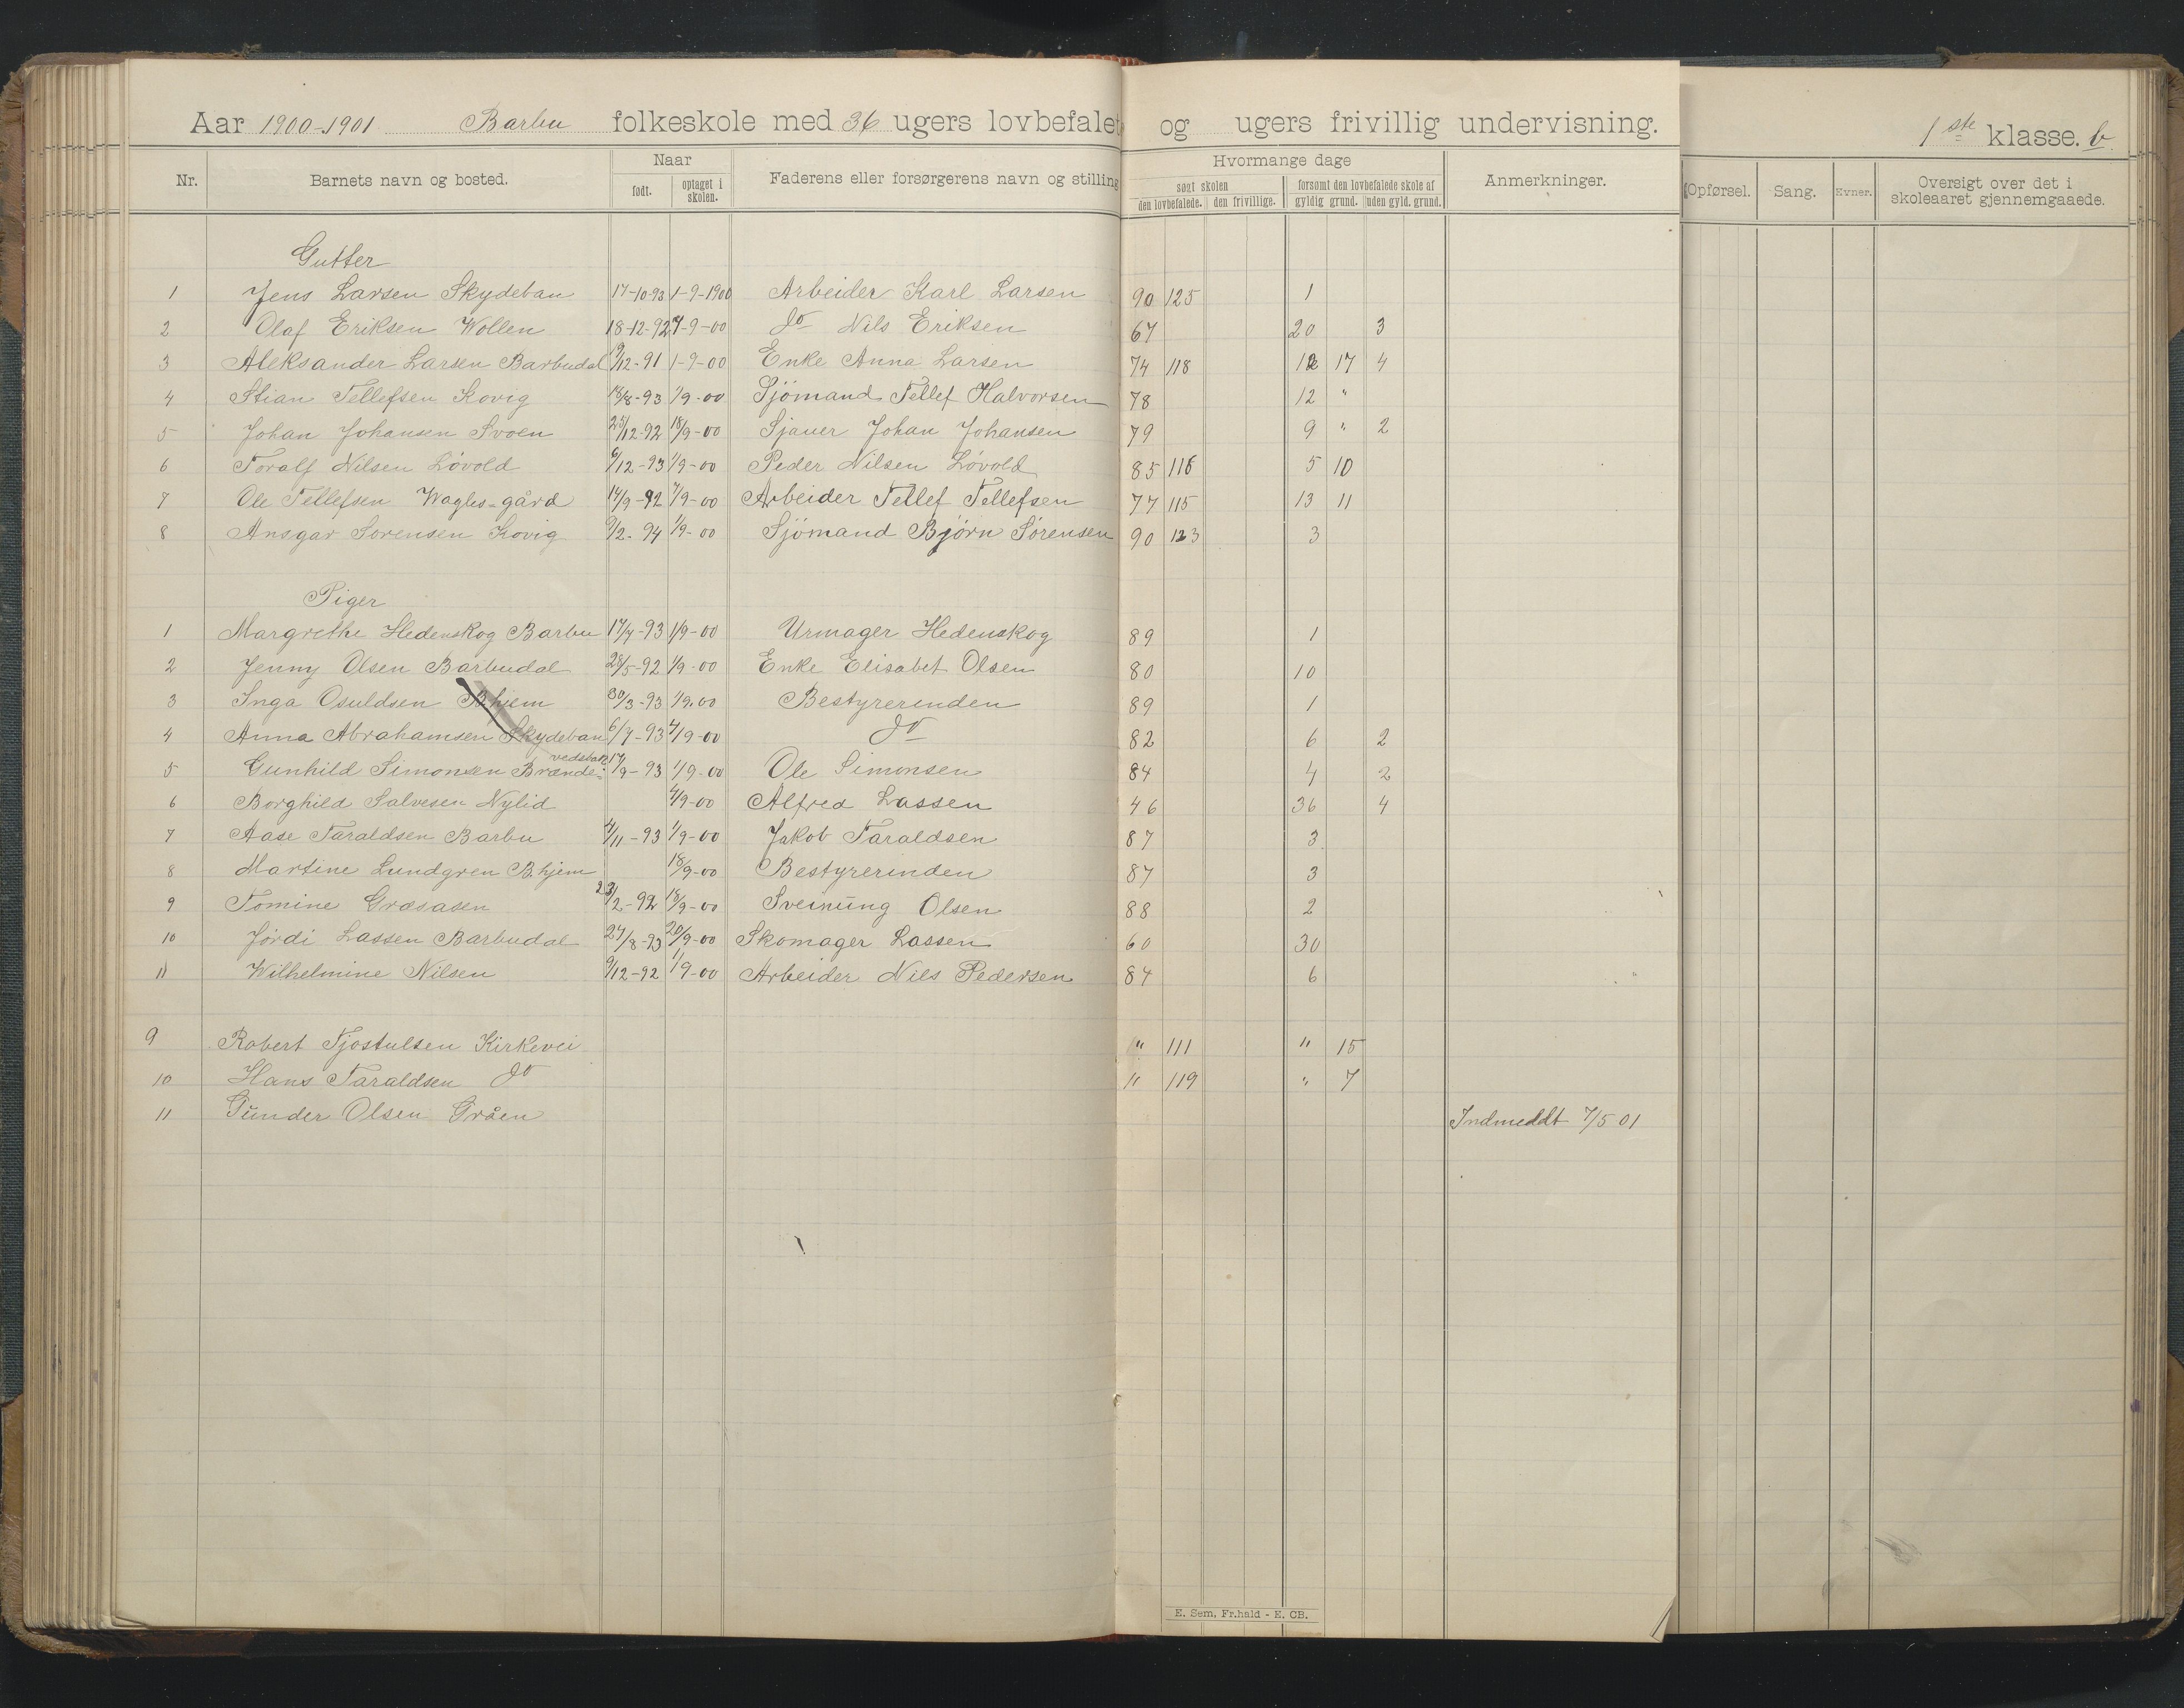 Aar 1900-1901 Barbu folkeskole med 36 ugers lovbefalet og ugers frivillig undervisning. 1ste klasse. b
Nr. Barnets navn og bosted. Naar Faderens eller forsørgerens navn og stilling Hvormange dage Anmerkninger. Opførsel. Sang. Evner. Oversigt over det i skoleaaret gjennemgaaede.
født. optaget i skolen. søgt skolen forsømt den lovbefalede skole af
den lovbefalede. den frivillige. gyldig grund. uden gyld. grund.
Gutter
1 Jens Larsen Skydeban 17-10-93 1-9-1900 Arbeider Karl Larsen 90 125 1
2 Olaf Eriksen Wollen 18-12-92 7-9-00 Do Nils Eriksen 67 20 3
3 Aleksander Larsen Barbudal 9/12-91 1-9-00 Enke Anna Larsen 74 118 17 4
4 Stian Tellefsen Kovig 18/8-93 1/9-00 Sjömand Tellef Halvorsen 78 12 "
5 Johan Johansen Svoen 25/12-92 18/9-00 Sjauer Johan Johansen 79 9 " 2
6 Toralf Nilsen Lövold 6/12-93 1/9-00 Peder Nilsen Lövold 85 116 5 10
7 Ole Tellefsen Wagles-gård 14/9-92 7/9-00 Arbeider Tellef Tellefsen 77 115 13 11
8 Ansgar Sorensen Kovig 9/2-94 1/9-00 Sjömand Björn Sörensen 90 123 3
Piger
1 Margrethe Hedenskog Barbu 17/7-93 1/9-00 Urmager Hedenskog 89 1
2 Jenny Olsen Barbudal 28/5-92 1/9-00 Enke Elisabet Olsen 80 10
3 Inga Osuldsen B.hjem 30/3-93 1/9.00 Bestyrerinden 89 1
4 Anna Abrahamsen Skydeban 6/7-93 4/9-00 Do 82 6 2
5 Gunhild Simonsen Brænde-vedsbak 17/9-93 1/9-00 Ole Simonsen 84 4 2
6 Borghild Salvesen Nylid 4/9-00 Alfred Lassen 46 36 4
7 Aase Taraldsen Barbu 4/11-93 1/9-00 Jakob Taraldsen 87 3
8 Martine Lundgren B.hjem 18/9-00 Bestyrerinden 87 3
9 Tomine Græsasen 23/2-92 18/9-00 Sveinung Olsen 88 2
10 Jördi Lassen Barbudal 27/8-93 20/9-00 Skomager Lassen 60 30
11 Wilhelmine Nilsen 9/12-92 1/9-00 Arbeider Nils Pedersen 84 6
9 Robert Tjostulsen Kirkevei " 111 " 15
10 Hans Taraldsen Do " 119 " 7
11 Gunder Olsen Gråen Indmeddt 7/5 01
E. Sem, Fr.hald - E. CB.